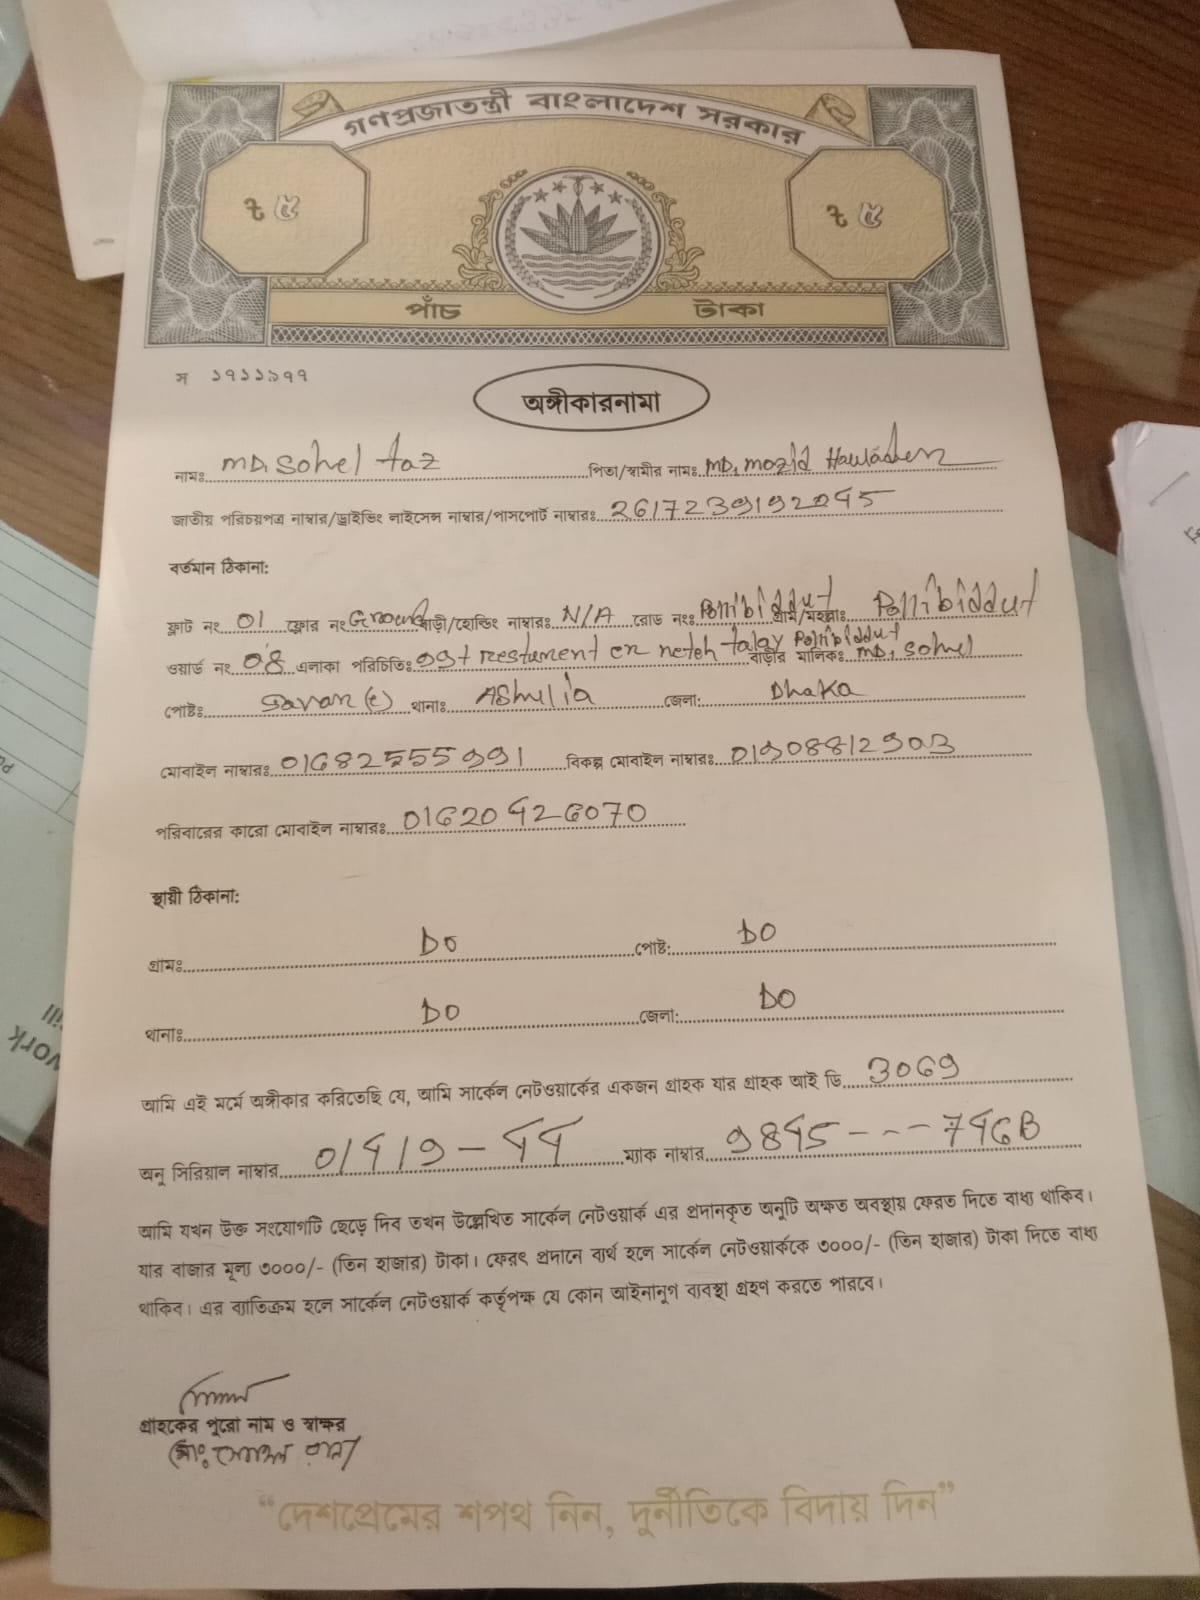 গণপ্রজাতন্ত্রী বাংলাদেশ সরকার
৳ ৫ ৳ ৫
পাঁচ টাকা
স ১৭১১৯৭৭
অঙ্গীকারনামা
নামঃ MD. Sohel taz পিতা/স্বামীর নামঃ MD. mozid Hawlader
জাতীয় পরিচয়পত্র নাম্বার/ড্রাইভিং লাইসেন্স নাম্বার/পাসপোর্ট নাম্বারঃ
বর্তমান ঠিকানা:
ফ্লাট নং 01 ফ্লোর নং Ground বাড়ী/হোল্ডিং নাম্বারঃ N/A রোড নংঃ Pollibiddut গ্রাম/মহল্লাঃ Pollibiddut
ওয়ার্ড নং 08 এলাকা পরিচিতিঃ Pollibiddut বাড়ীর মালিকঃ MD. Sohel
পোষ্টঃ Savar থানাঃ AShulia জেলা: Dhaka
মোবাইল নাম্বারঃ 01682555991 বিকল্প মোবাইল নাম্বারঃ
পরিবারের কারো মোবাইল নাম্বারঃ 01620426070
স্থায়ী ঠিকানা:
গ্রামঃ DO পোষ্ট: DO
থানাঃ DO জেলা: DO
আমি এই মর্মে অঙ্গীকার করিতেছি যে, আমি সার্কেল নেটওয়ার্কের একজন গ্রাহক যার গ্রাহক আই ডি 3069
অনু সিরিয়াল নাম্বার 01419-44 ম্যাক নাম্বার 9845---746B
আমি যখন উক্ত সংযোগটি ছেড়ে দিব তখন উল্লেখিত সার্কেল নেটওয়ার্ক এর প্রদানকৃত অনুটি অক্ষত অবস্থায় ফেরত দিতে বাধ্য থাকিব।
যার বাজার মূল্য ৩০০০/- (তিন হাজার) টাকা। ফেরৎ প্রদানে ব্যর্থ হলে সার্কেল নেটওয়ার্ককে ৩০০০/- (তিন হাজার) টাকা দিতে বাধ্য
থাকিব। এর ব্যাতিক্রম হলে সার্কেল নেটওয়ার্ক কর্তৃপক্ষ যে কোন আইনানুগ ব্যবস্থা গ্রহণ করতে পারবে।
গ্রাহকের পুরো নাম ও স্বাক্ষর
“দেশপ্রেমের শপথ নিন, দুর্নীতিকে বিদায় দিন”